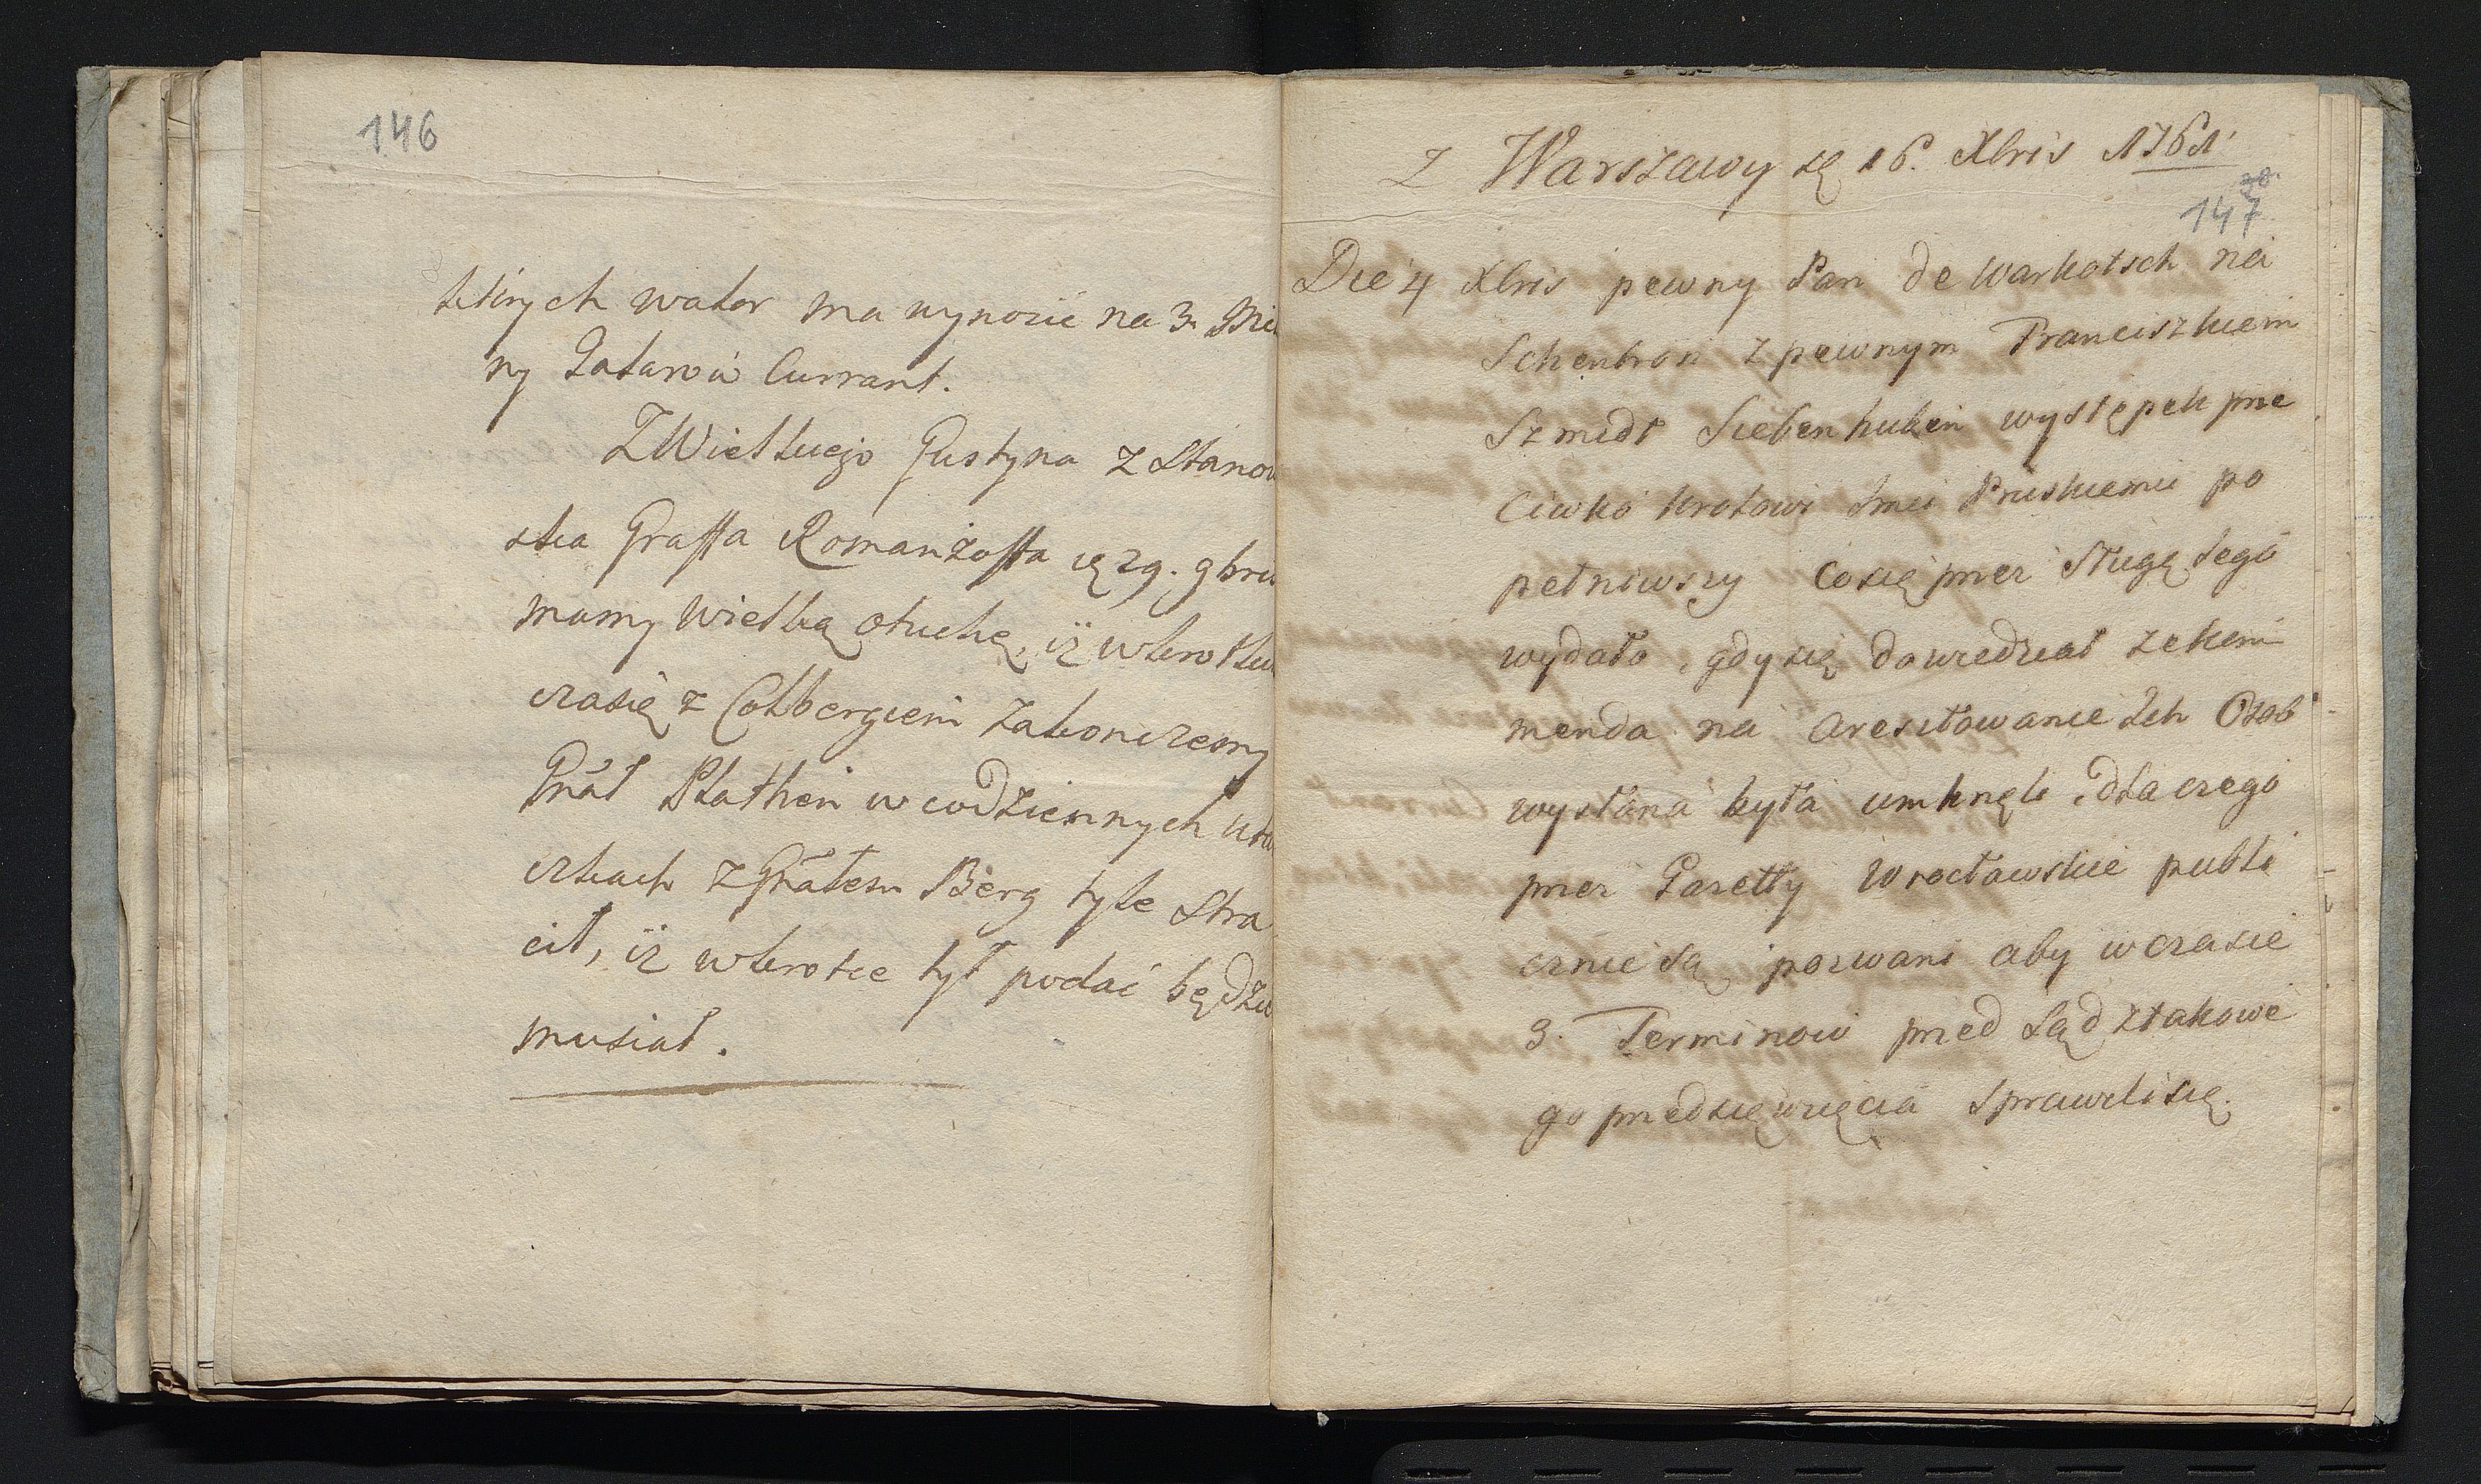 146
których walor ma wynosić na 3. Mil
ny Talarów Currant.
Z Wielkiego Gustyna z Stanow
ska Graffa Romanzoffa ię 29. 9bris
mamy Wielką otuchę, iż wkrotkim
czasię z Colbergiem zakonczemy
Gnáł Plathen w codziennych utar
czkach z Gnáłem Berg tyle stra
cił, iż wkrotce tył podać będzie
musiał.
Z Warszawy ię 16. Xbris 1761
20.
147
Die 4 Xbris pewny Pan de Warkotsch na
Schenbron z pewnym Franciszkiem
Szmidt Siebenhuken występek prze
ciwko krolowi Jmci Pruskiemu po
pełniwszy Co się przez sługę Jego
wydało, gdy się dowiedział ze kom
menda na aresztowanie Ich Osob
wysłana była umknęli, dla czego
przez Gazetty Wrocławskie publi
cznie są pozwani aby w czasie
3. Terminow przed Sąd z takowe
go przedsięwzięcia sprawili się.